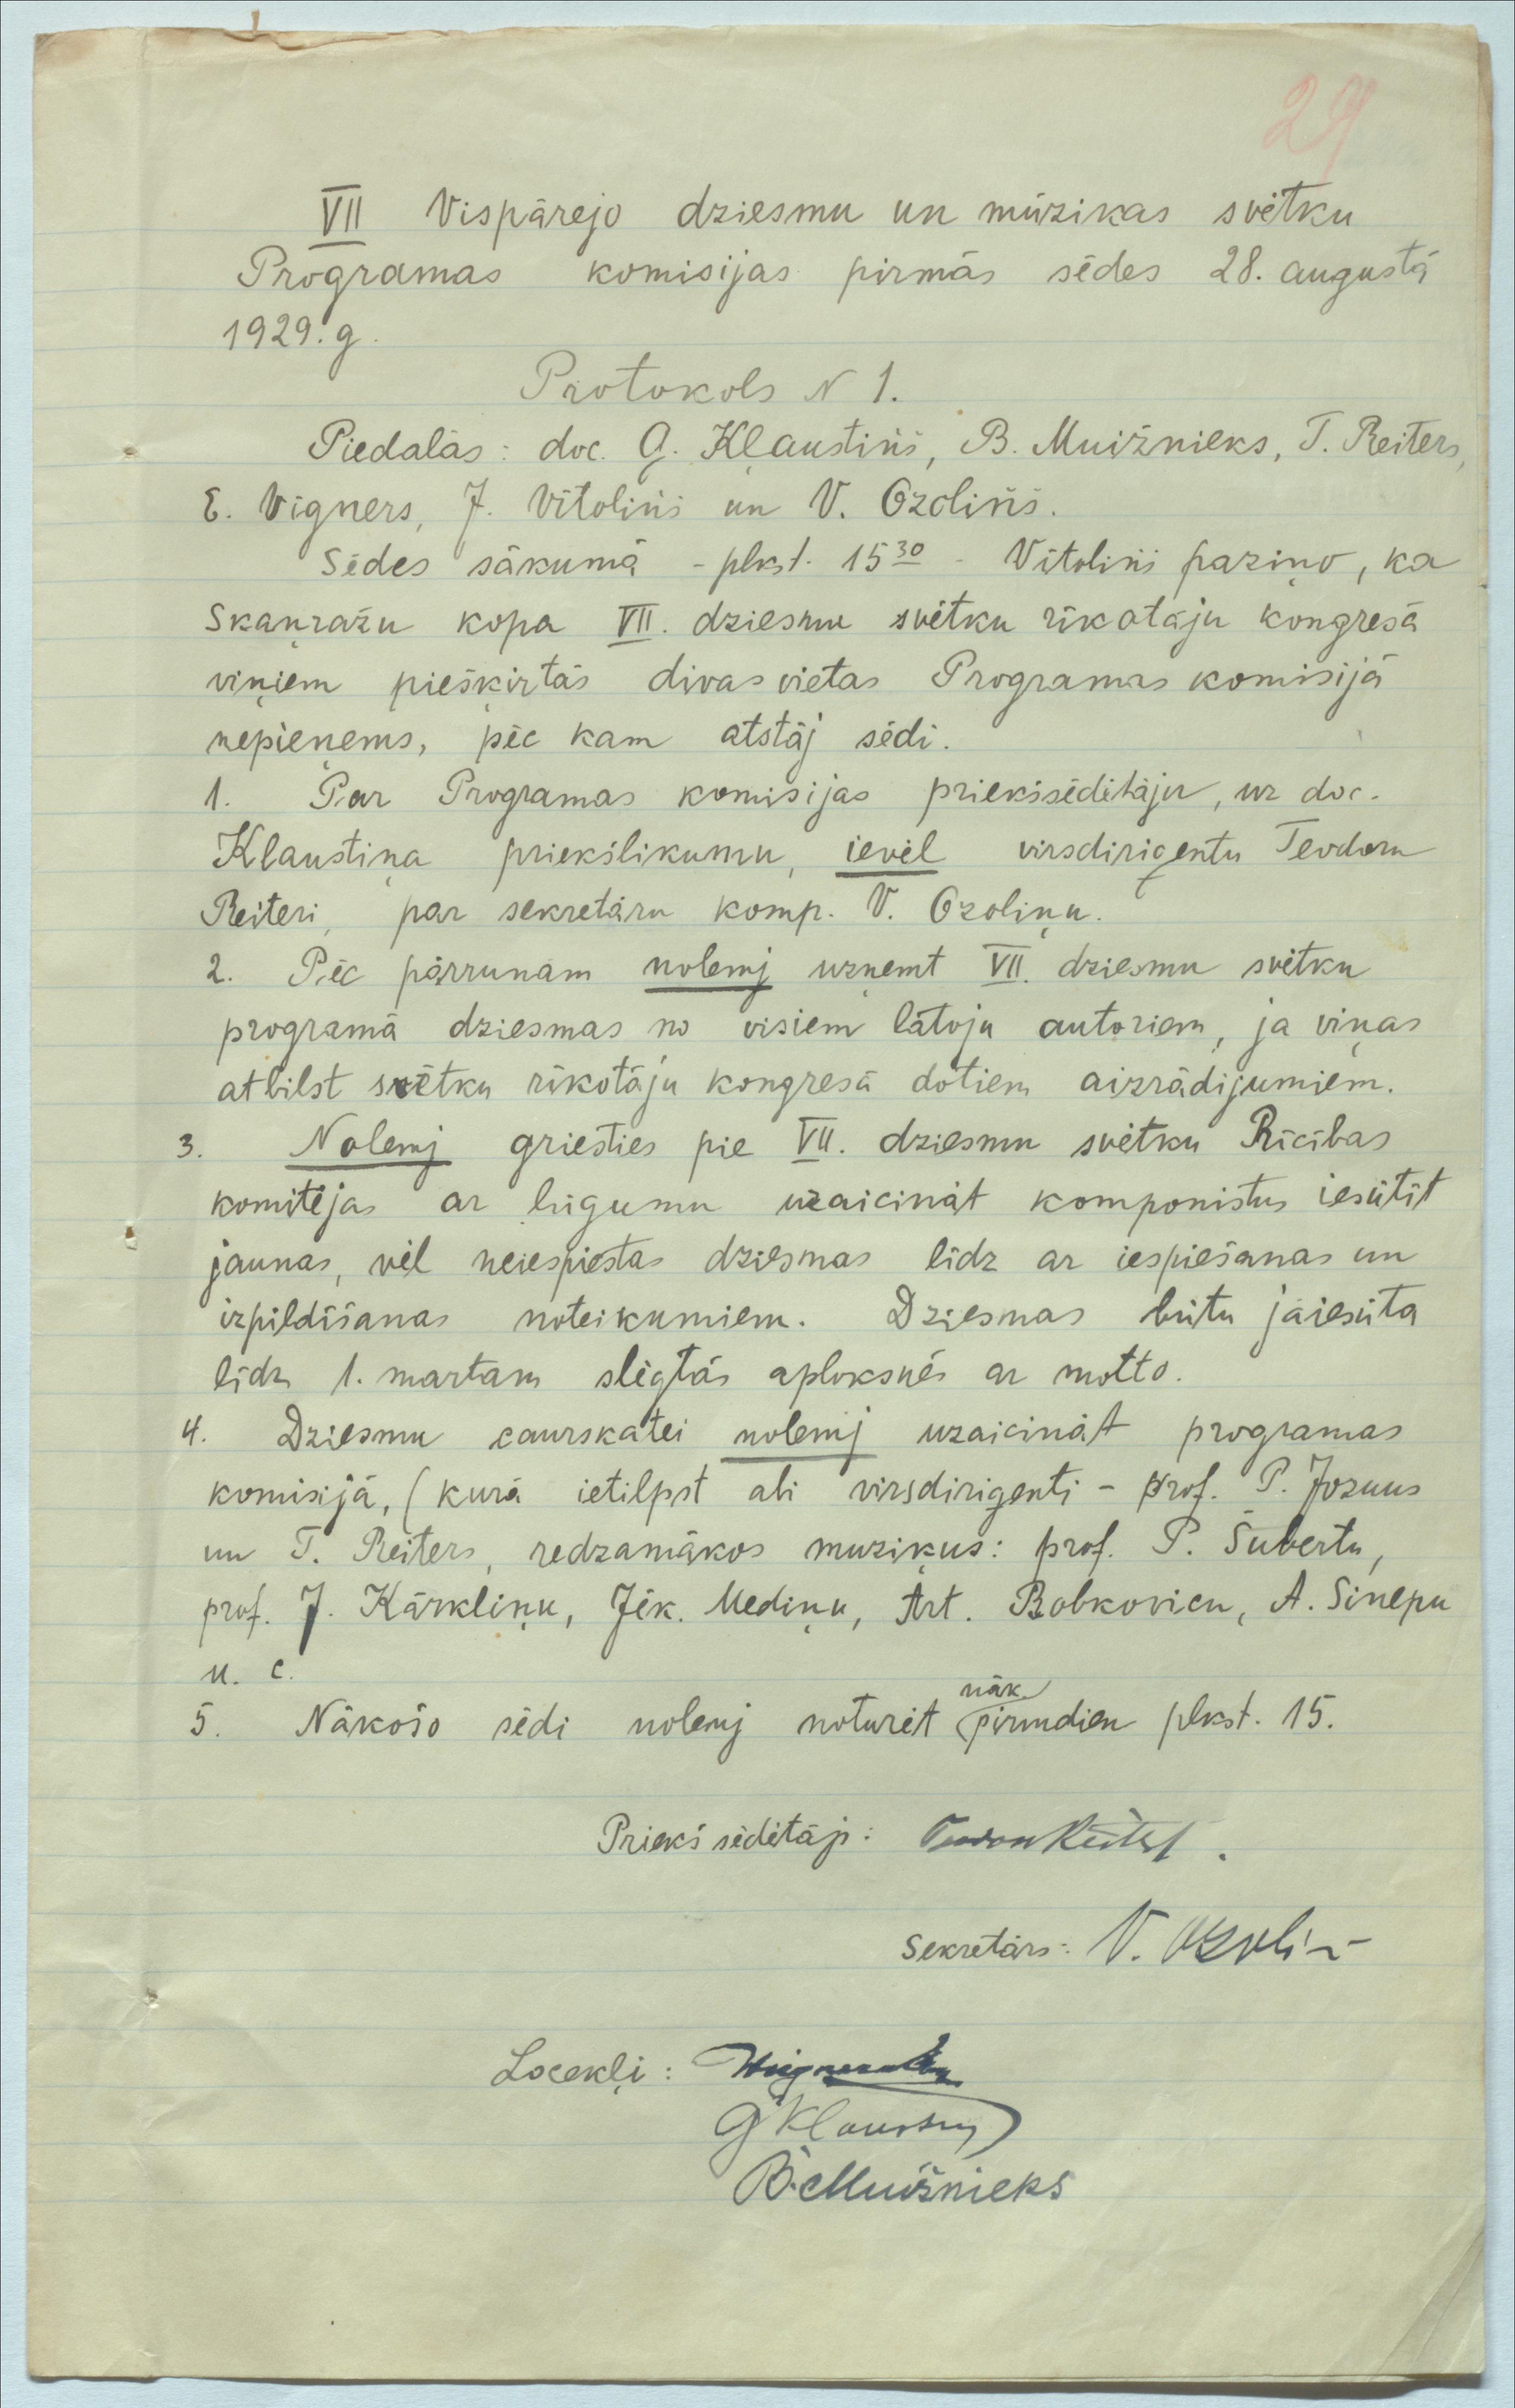 29
VII Vispārejo dziesmu un mūzikas svētku
Programas komisijas pirmās sēdes 28. augustā
1929. g.
Protokols N 1.
Piedalās: doc. G. Kļaustiņš, B. Muižnieks, T. Reiters,
E. Vīgners, J. Vītoliņš un V. Ozoliņš.
Sēdes sākumā - plkst. 15³⁰ - Vītoliņš paziņo, ka
Skaņražu kopa VII. dziesmu svētku rīkotāju kongresā
viņiem piešķirtās divas vietas Programas komisijā
nepieņems, pēc kam atstāj sēdi.
1. Par Programas komisijas priekšsēdētāju, uz doc.
Klaustiņa priekšlikumu, ievēl virsdiriģentu Teodoru
Reiteri, par sekretāru komp. V. Ozoliņu.
2. Pēc pārrunām nolemj uzņemt VII. dziesmu svētku
programā dziesmas no visiem latvju autoriem, ja viņas
atbilst svētku rīkotāju kongresā dotiem aizrādījumiem.
3. Nolemj griesties pie VII. dziesmu svētku Rīcības
komitejas ar lūgumu uzaicināt komponistus iesūtīt
jaunas, vēl neiespiestas dziesmas līdz ar iespiešanas un
izpildīšanas noteikumiem. Dziesmas būtu jāiesūta
līdz 1. martam slēgtās aploksnēs ar motto.
4. Dziesmu caurskatei nolemj uzaicināt programas
komisijā, (kurā ietilpst abi virsdiriģenti - prof. P. Jozuus
un T. Reiters, redzamākos mūziķus: prof. P. Šubertu,
prof. J. Kārkliņu, Jēk. Mediņu, Art. Bobkovicu, A. Sinepu
u. c.
5. Nākošo sēdi nolemj noturēt nāk. pirmdien plkst. 15.
Priekšsēdētājs: Teodors Reiters.
Sekretārs: V. Ozoliņ
Locekļi: Wigneru
G Klaustiņ
B. Muižnieks